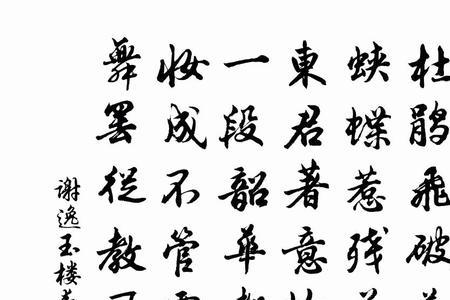 杜鹃飛破
蛱蝶惹残
東君著意
一段韶華
妝成不管
舞罢從教
谢逸玉楼春